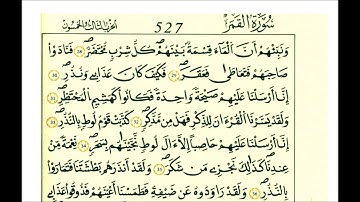 سُورَةُ القَمَر 527 الحزب الثالث والخمسون
وَنَبِّئْهُمُ أَنَّ اَلْمَآءَ قِسْمَةٌ بَيْنَهُمْ كُلُّ شِرْبٍ مُّحْتَضَرٌ 28 فَنَادَوْا
صَاحِبَهُمْ فَتَعَاطَىٰ فَعَقَرَ 29 فَكَيْفَ كَانَ عَذَابِے وَنُذُرِ 30
إِنَّا أَرْسَلْنَا عَلَيْهِمْ صَيْحَةً وَاحِدَةً فَكَانُوا كَهَشِيمِ اِلْمُحْتَظِرِ 31
وَلَقَدْ يَسَّرْنَا اَلْقُرْءَانَ لِلذِّكْرِ فَهَلْ مِن مُّدَّكِرٍ 32 كَذَّبَتْ قَوْمُ لُوطٍ بِالنُّذُرِ 33
إِنَّا أَرْسَلْنَا عَلَيْهِمْ حَاصِباً اِلَّا ءَالَ لُوطٍ نَّجَّيْنَٰهُم بِسَحَرٍ 34 نِّعْمَةً مِّنْ
عِندِنَا كَذَٰلِكَ نَجْزِے مَن شَكَرَ 35 وَلَقَدْ أَنذَرَهُم بَطْشَتَنَا فَتَمَارَوْا
بِالنُّذُرِ 36 وَلَقَدْ رَاوَدُوهُ عَن ضَيْفِهِ فَطَمَسْنَا أَعْيُنَهُمْ فَذُوقُوا عَذَابِے